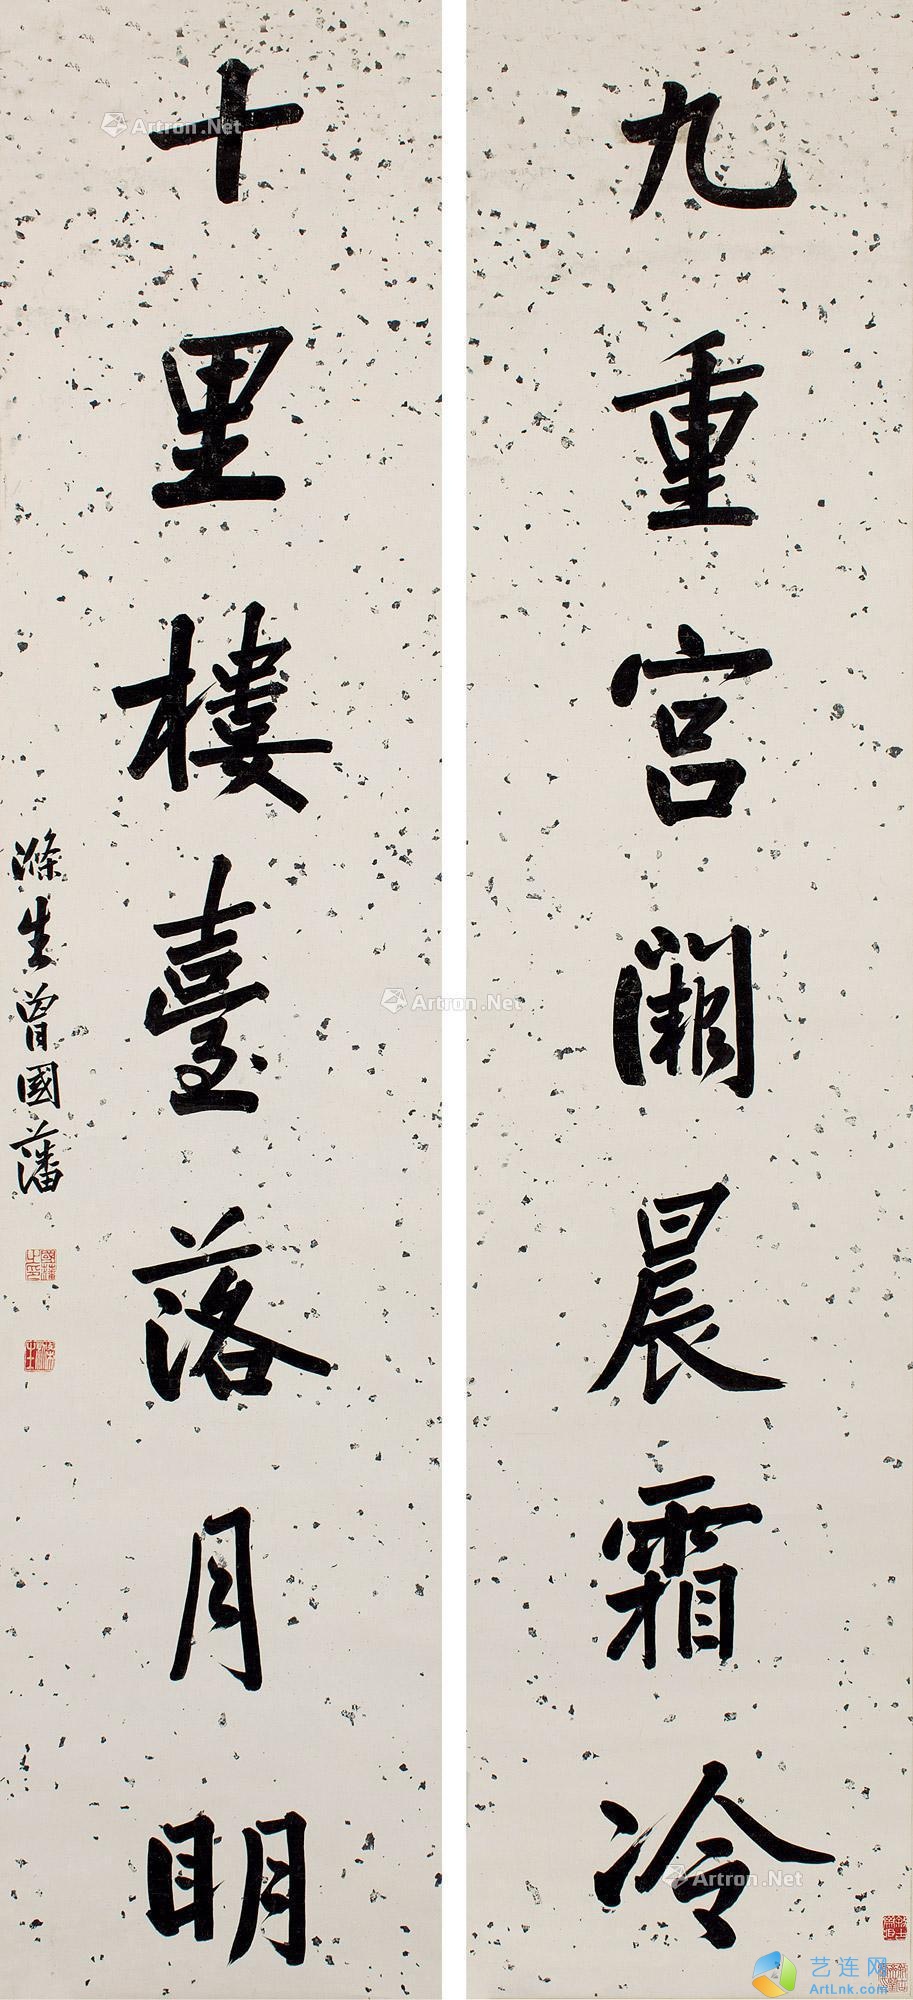 九重宫闕晨霜冷
十里樓臺落月明
滌生曾國藩
國藩之印
Artron.Net
Artron.Net
Artron.Net
艺连网
ArtLnk.com